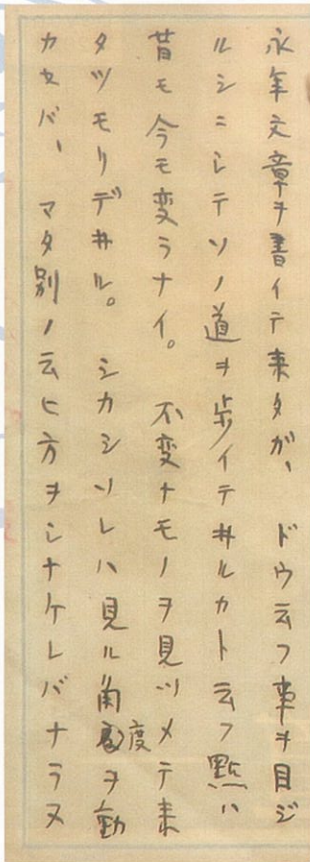 永年文章ヲ書イテ来タガ、ドウ云フ事ヲ目ジ
ルシニシテソノ道ヲ歩イテヰルカト云フ點ハ
昔モ今モ変ラナイ。不変ナモノヲ見ツメテ来
タツモリデヰル。シカシソレハ見ル角度ヲ動
カセバ、マタ別ノ云ヒ方ヲシナケレバナラヌ